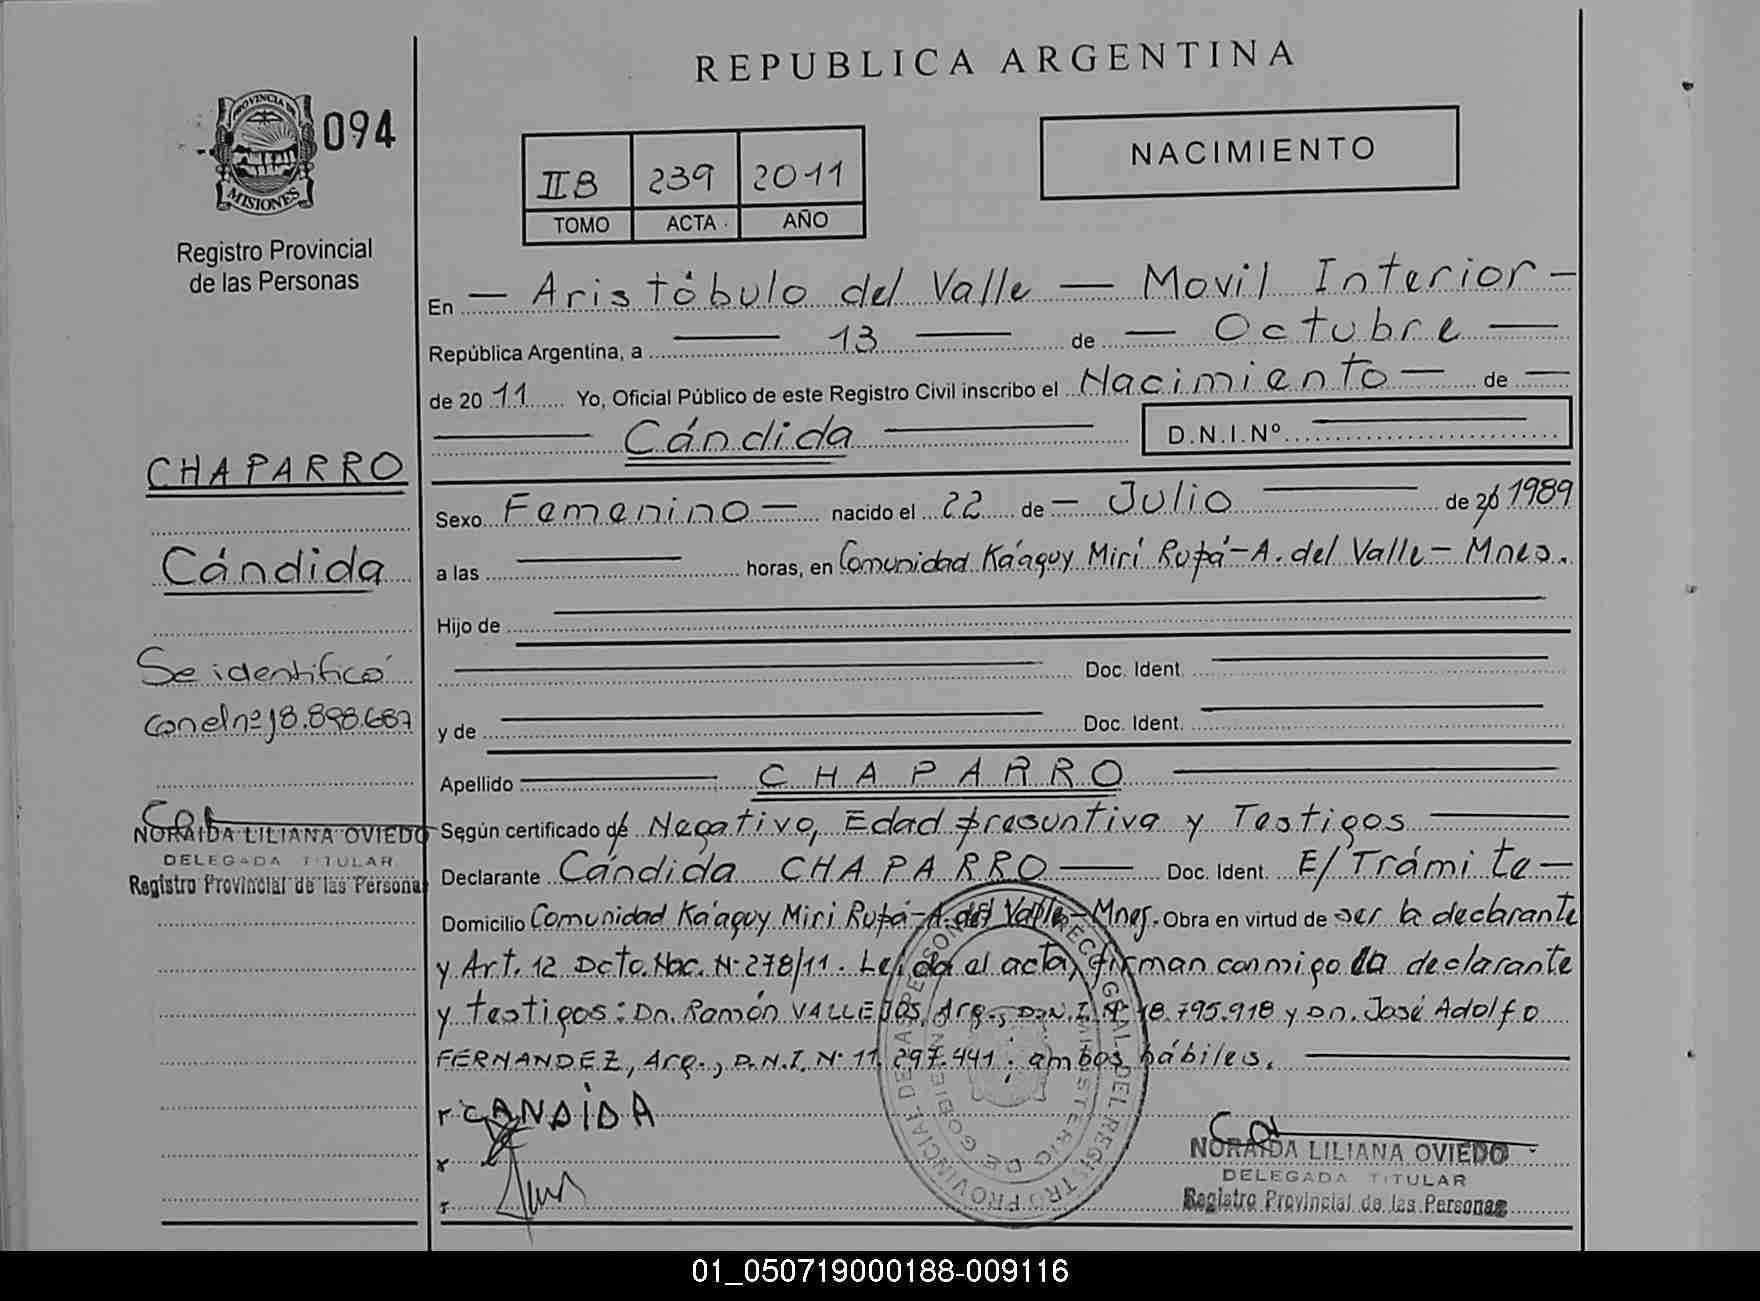 REPUBLICA ARGENTINA
PROVINCIA DE
MISIONES
094
Registro Provincial
de las Personas
II B 239 2011
TOMO ACTA AÑO
NACIMIENTO
En — Aristóbulo del Valle — Movil Interior —
República Argentina, a — 13 — de — Octubre —
de 2011 Yo, Oficial Público de este Registro Civil inscribo el Nacimiento — de —
— Cándida — D.N.I.Nº —
Sexo Femenino — nacido el 22 de — Julio — de 20 1989
a las — horas, en Comunidad Ka'aguy Mirí Rupá - A. del Valle - Mnes.
Hijo de —
— Doc. Ident. —
y de — Doc. Ident. —
Apellido — CHAPARRO —
Según certificado de Negativo, Edad presuntiva y Testigos —
Declarante Cándida CHAPARRO — Doc. Ident. E/Trámite —
Domicilio Comunidad Ka'aguy Miri Rupá - A. del Valle - Mnes. Obra en virtud de ser la declarante
y Art. 12 Dcto. Nac. Nº 278/11. Leída el acta, firman conmigo la declarante
y testigos: Dn. Ramón VALLEJOS, Arg., D.N.I. Nº 18.795.918 y Dn. José Adolfo
FERNANDEZ, Arg., D.N.I. Nº 11.297.441. ambos hábiles. —
CANDIDA
NORAIDA LILIANA OVIEDO
DELEGADA TITULAR
Registro Provincial de las Personas
CHAPARRO
Cándida
Se identificó
con el nº 18.898.687
NORAIDA LILIANA OVIEDO
DELEGADA TITULAR
Registro Provincial de las Persona
01_050719000188-009116